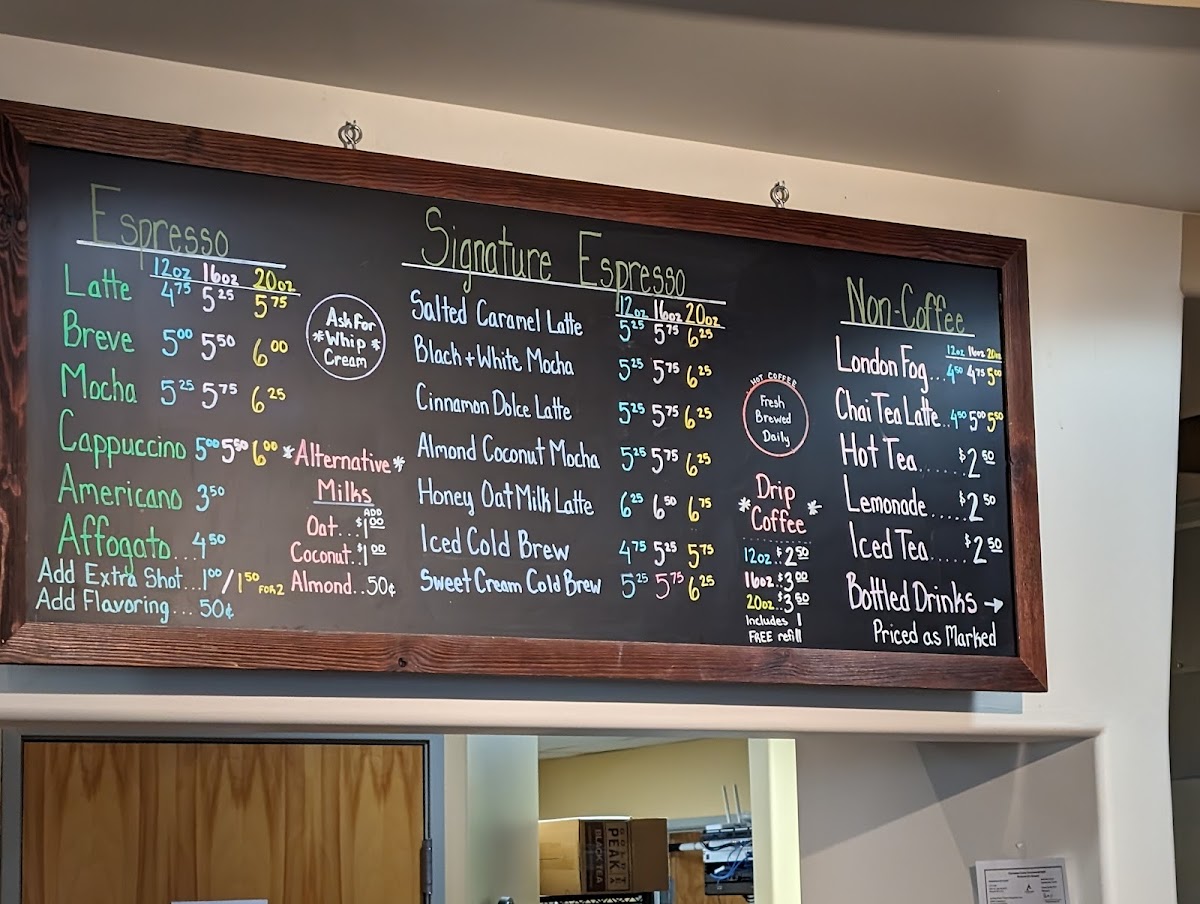 Espresso
12oz 16oz 20oz
Latte 4.75 5.25 5.75
Breve 5.00 5.50 6.00
Mocha 5.25 5.75 6.25
Cappuccino 5.00 5.50 6.00
Americano 3.50
Affogato... 4.50
Add Extra Shot...1.00/1.50 FOR 2
Add Flavoring... 50¢
Ask For
*Whip*
Cream
*Alternative*
Milks
ADD
Oat...$1.00
Coconut..$1.00
Almond..50¢
Signature Espresso
12oz 16oz 20oz
Salted Caramel Latte 5.25 5.75 6.25
Black + White Mocha 5.25 5.75 6.25
Cinnamon Dolce Latte 5.25 5.75 6.25
Almond Coconut Mocha 5.25 5.75 6.25
Honey Oat Milk Latte 6.25 6.50 6.75
Iced Cold Brew 4.75 5.25 5.75
Sweet Cream Cold Brew 5.25 5.75 6.25
HOT COFFEE
Fresh
Brewed
Daily
Drip
*Coffee*
12oz..$2.50
16oz..$3.00
20oz..$3.50
Includes 1
FREE refill
Non-Coffee
12oz 16oz 20oz
London Fog... 4.50 4.75 5.00
Chai Tea Latte.. 4.50 5.00 5.50
Hot Tea...... $2.50
Lemonade..... $2.50
Iced Tea..... $2.50
Bottled Drinks →
Priced as Marked
PEAK
BLACK TEA